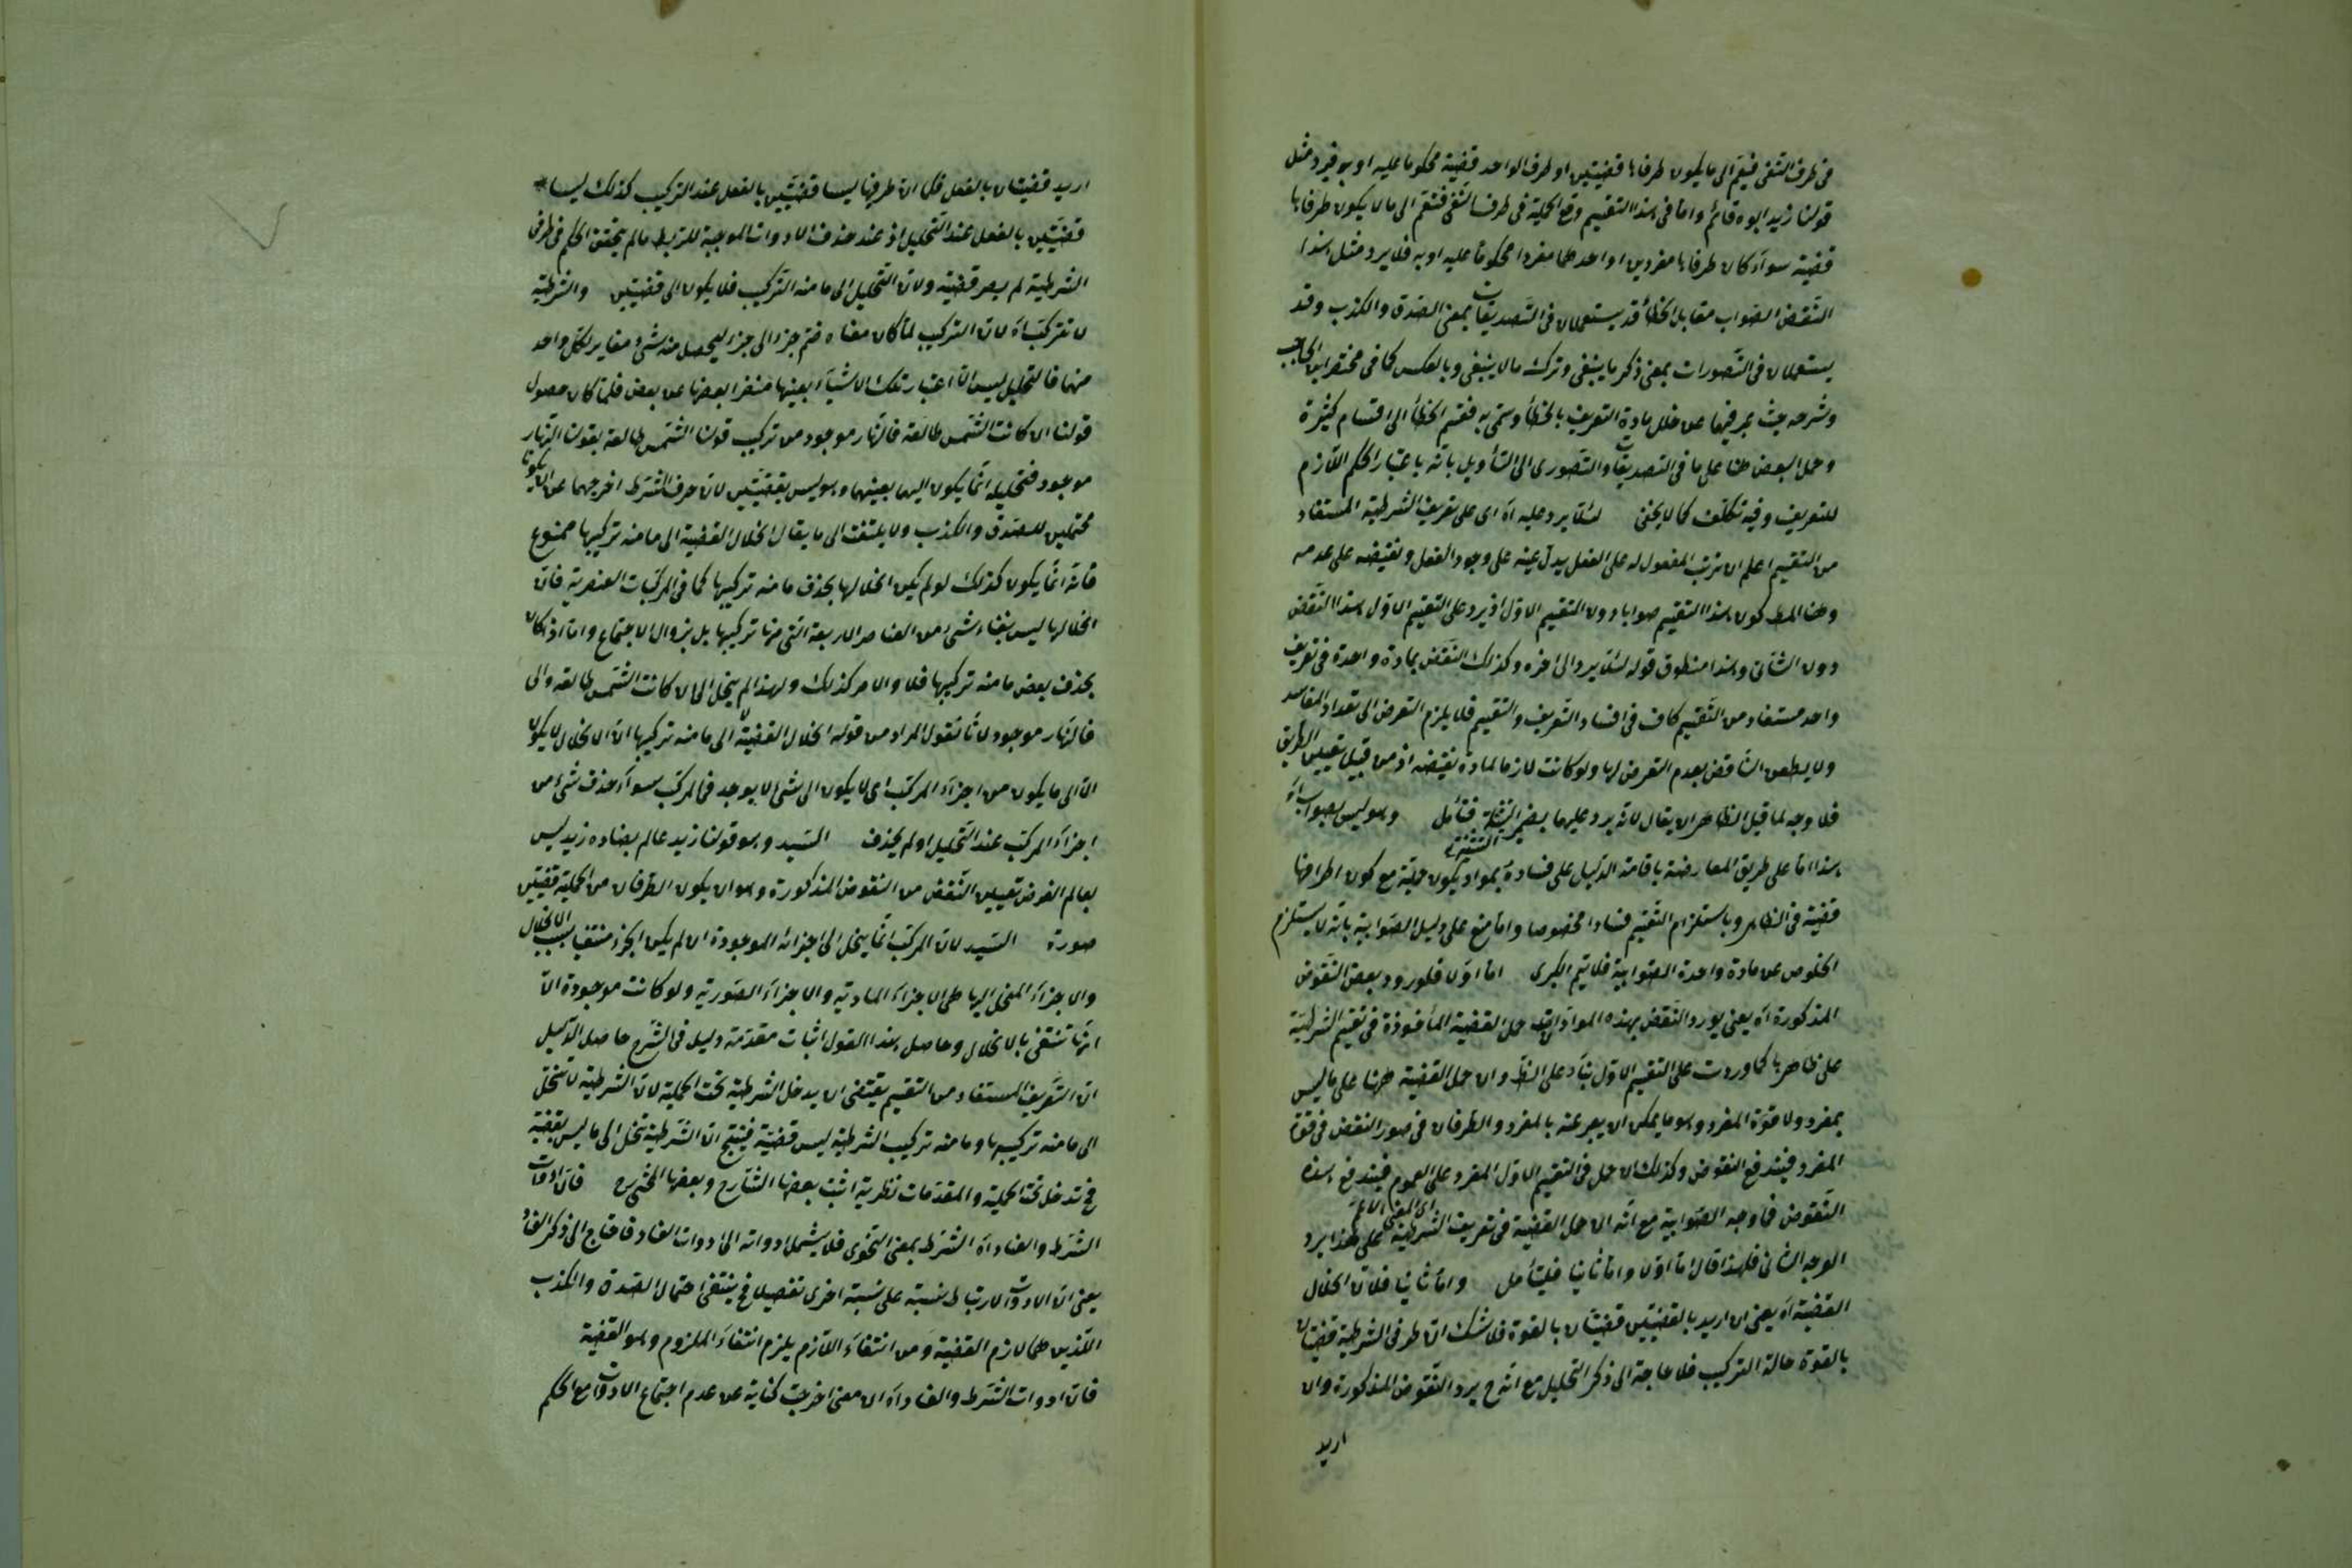 فى طرف النفى فيقم الى ما يكون طرفاها قضيتين او طرف الواحد قضية محكوما عليه او به فيرد مثل
قولنا زيد ابوه قائم واما فى هذا التقسيم وقع الحملية فى طرف النفى فتقم الى ما لا يكون طرفاها
قضية سواء كان طرفاها مفردين او احدهما مفردا محكوما عليه او به فلا يرد مثل هذا
النقض الصواب مقابل الخطأ قد يستعملان فى التصديقات بمعنى الصدق والكذب وقد
يستعملان فى التصورات بمعنى ذكر ما ينبغى وترك ما لا ينبغى وبالعكس كما فى مختصر ابن الحاجب
وشرحه حيث عن خلل مادة التعريف بالخطأ وسمى به فقسم الخطأ الى اقسام كثيرة
وحمل البعض هنا على ما فى التصديقات والتصورى الى التأويل بانه باعتبار الحكم اللازم
للتعريف وفيه تكلف كما لا يخفى لئلا يرد عليه اه اى على تعريف الشرطية المستفاد
من التقسيم اعلم ان ترتب المفعول له على الفعل يدل عينه على وجود الفعل ونقيضه على عدمه
وهنا المط كون هذا التقسيم صوابا دون التقسيم الاول اذ يرد على التقسيم الاول هذا النقض
دون الثانى وهذا منطوق قوله لئلا يرد الى اخره وكذلك النقض بمادة واحدة فى تعريف
واحد مستفاد من التقسيم كاف فى افساد التعريف والتقسيم فلا يلزم التعرض الى تعداد المفاسد
ولا يطعن الناقض بعدم التعرض لها ولو كانت لازما لمادة نقيضه اذ من قبيل تعيين الطريق
فلا وجه لما قيل الظاهر ان يقال لانه يرد عليهما بضمير التثنية فتأمل وهو ليس بصواب اه
هذا اما على طريق المعارضة باقامة الدليل على فساده بمواد يكون حملية مع كون اطرافها
قضية فى الظاهر وباستلزام التقسيم فسادا مخصوصا واما منع على دليل الصوابية بانه لا يستلزم
الخلوص عن مادة واحدة الصوابية فلا تتم الكبرى اما اولا فلورود بعض النقوض
المذكورة اه يعنى يورد النقض بهذه المواد حمل القضية المأخوذة فى تقسيم الشرطية
على ظاهرها كما وردت على التقسيم الاول بناء على الظ وان حمل القضية ههنا على ما ليس
بمفرد ولا قوة المفرد وهو ما يمكن ان يعبر عنه بالمفرد والطرفان فى صور النقض فى قوة
المفرد فيندفع النقوض وكذلك ان حمل فى التقسيم الاول المفرد على العموم فيندفع هذه
النقوض فما وجه الصوابية مع انه ان حمل القضية فى تعريف الشرطية على هذا يرد
اى المعنى الاعم
الوجه الثانى فلهذا قال اما اولا واما ثانيا فليتأمل واما ثانيا فلان انحلال
القضية اه يعنى ان اريد بالقضيتين قضيتان بالقوة فلا شك ان طرفى الشرطية قضيتان
بالقوة حالة التركيب فلا حاجة الى ذكر التحليل مع انه ح يرد النقوض المذكورة وان
اريد
اريد قضيتان بالفعل فكما ان طرفيها ليسا قضيتين بالفعل عند التركيب كذلك ليسا
قضيتين بالفعل عند التحليل اذ عند حذف الادوات الموجبة للربط مالم يتحقق الحكم فى طرفى
الشرطية لم يصر قضية ولان التحليل الى ما منه التركيب فلا يكون الى قضيتين والشرطية
لا تتركب اه لان التركيب لما كان معناه ضم جزء الى جزء ليحصل منه شئ مغاير لكل واحد
منها فالتحليل ليس الا اعتبار تلك الاشياء بعينها منفرا بعضها عن بعض فلما كان حصول
قولنا ان كانت الشمس طالعة فالنهار موجود من تركيب قولنا الشمس طالعة بقولنا النهار
موجود فتحليله انما يكون اليهما بعينهما وهو ليس بقضيتين لان حرف الشرط اخرجهما عن ان يكونا
محتملين للصدق والكذب ولا يلتفت الى ما يقال انحلال القضية الى ما منه تركيبها ممنوع
فانه انما يكون كذلك لو لم يكن انحلالها بحذف ما منه تركيبها كما فى المركبات العنصرية فان
انحلالها ليس بفناء شئ من العناصر الاربعة التى منها تركيبها بل بزوال الاجتماع واما اذا كان
بحذف بعض ما منه تركيبها فلا والامر كذلك ولهذا لم ينحل الى ان كانت الشمس طالعة والى
فالنهار موجود لانا نقول المراد من قوله انحلال القضية الى ما منه تركيبها ان الانحلال لا يكون
الا الى ما يكون من اجزاء المركب اى لا يكون الى شئ لا يوجد فى المركب سواء حذف شئ من
اجزاء المركب عند التحليل او لم يحذف السيد وهو قولنا زيد عالم يضاده زيد ليس
بعالم الغرض تعيين النقض من النقوض المذكورة وهو ان يكون الطرفان من الحملية قضيتين
صورة السيد لان المركب انما ينحل الى اجزائه الموجودة ان لم يكن الجزء منتفيا بسبب الانحلال
والاجزاء المنحل اليها هى الاجزاء المادية والاجزاء الصورية ولو كانت موجودة الا
انها تنتفى بالانحلال وحاصل هذا القول اثبات مقدمة دليل فى الشرح حاصل الدليل
ان التعريف المستفاد من التقسيم يقتضى ان يدخل الشرطية تحت الحملية لان الشرطية لا تنحل
الى ما منه تركيبها وما منه تركيب الشرطية ليس قضية فينتج ان الشرطية تنحل الى ما ليس بقضية
فح تدخل تحت الحملية والمقدمات نظرية اثبت بعضها الشارح وبعضها المحشى ره فان ادوات
الشرط والعناد اه الشرط بمعنى النحوى فلا يشمل ادواته الى ادوات العناد فاحتاج الى ذكر العناد
يعنى ان الادوات لارتباط نسبة على نسبة اخرى تفصيلا فح ينتفى احتمال الصدق والكذب
اللذين هما لازم القضية ومن انتفاء اللازم يلزم انتفاء الملزوم وهو القضية
فان ادوات الشرط والعناد اه ان معنى اخرجت كناية عن عدم اجتماع الادوات مع الحكم